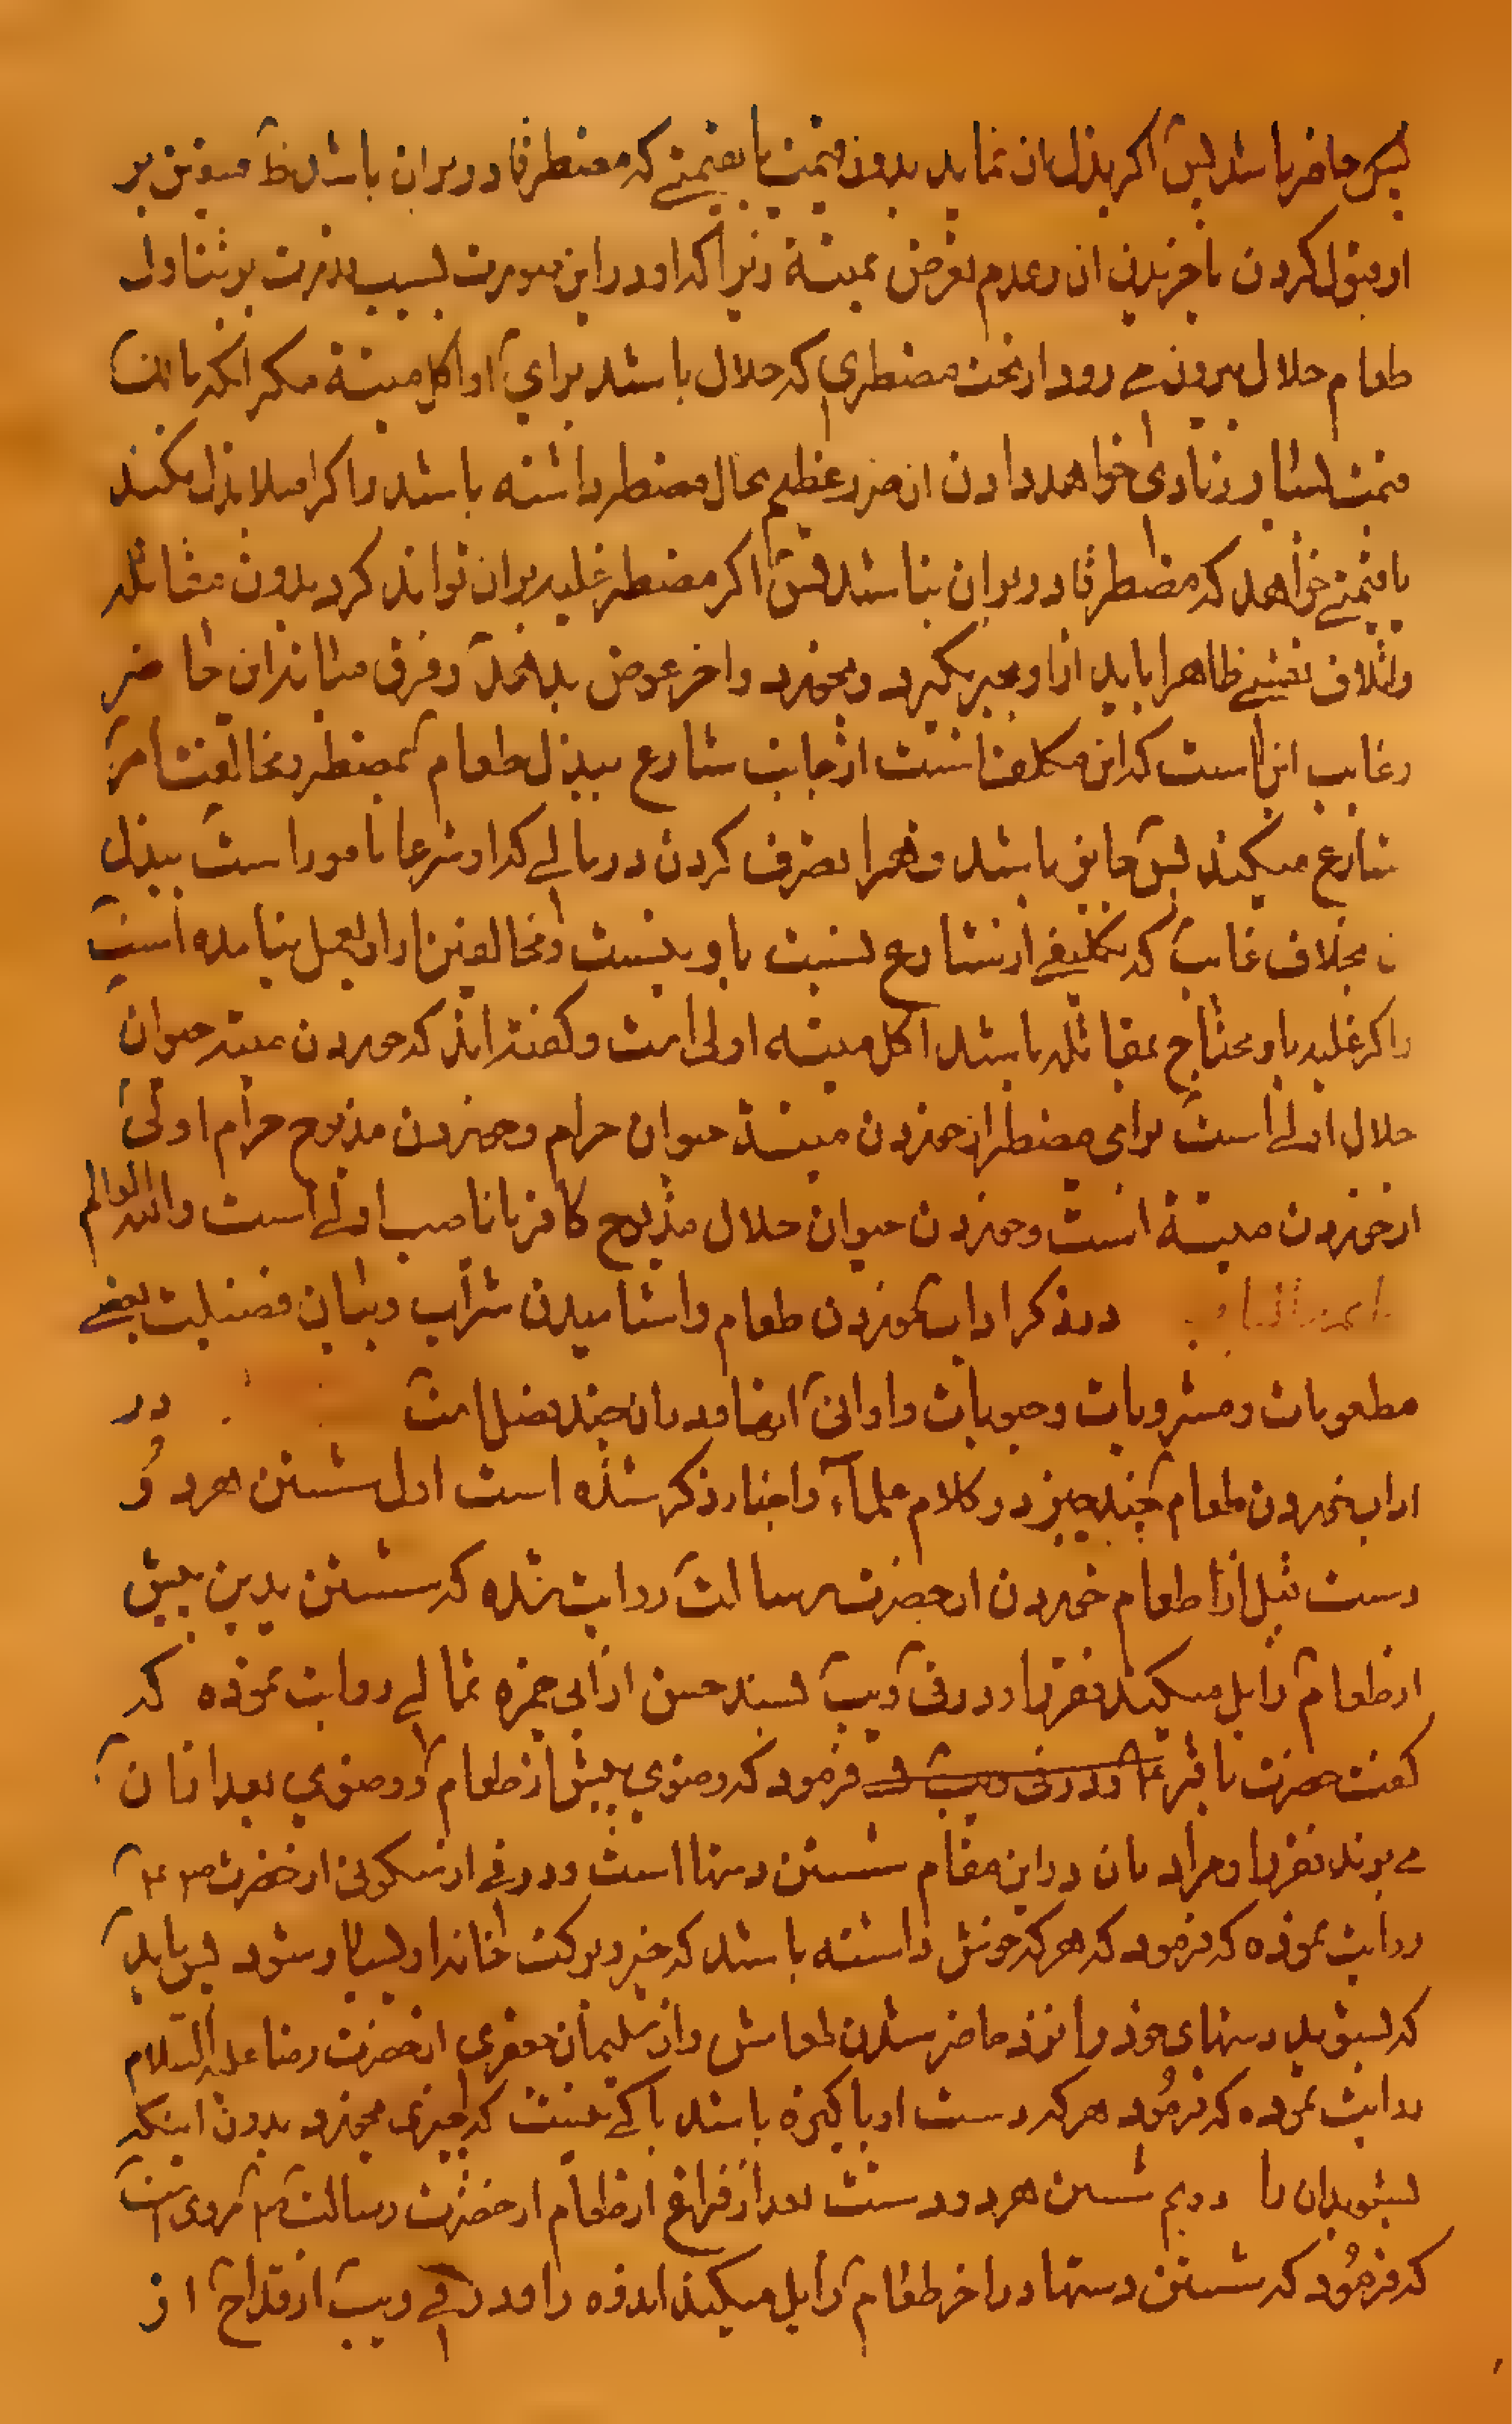 پس حاضر باشد پس اکر بذل ان نماید بدون قیمت یا بقیمتے که مضطر قادر بران باشد متعین بر
او قبول کردن یا خریدن ان و عدم تعرض بمیتة زیرا که او در این صورت بسبب قدرت بر تناول
طعام حلال بیرون مے رود از تحت مضطری که حلال باشد برای او اکل میتة مکر انکه بانت
قیمت بسیار زیادی خواهد دادن ان ضرر عظیم بحال مضطر داشته باشد و اکر اصلا بذل نکند
یا قیمتے خواهد که مضطر قادر بران نباشد پس اکر مضطر غلبه بران تواند کرد بدون مقاتله
و اتلاف نفسے ظاهرا باید از او بجبر بکیرد و بخورد و اخر عوض بدهد و فرق میانه این حاضر
و غایب این است که این مکلف است از جانب شارع ببذل طعام بمضطر و مخالفت امر
شارع میکند پس جایز باشد قهرا تصرف کردن در مالے که او شرعا مامور است ببذل
ن بخلاف غایب که تکلیفے از شارع نسبت باو نیست و مخالفتی از او بعمل نیامده است
و اکر غلبه باو محتاج بمقاتله باشد اکل میته اولی است و کفته اند که خوردن میته حیوان
حلال اولے است برای مضطر از خوردن میتة حیوان حرام و خوردن مذبوح حرام اولی
از خوردن میتة است و خوردن حیوان حلال مذبوح کافر یا ناصب اولے است والله العالم
در ذکر اداب خوردن طعام و اشامیدن شراب و بیان فضیلت بعضے
مطعومات و مشروبات و حبوبات و اوانی انها و در ان چند فصل است در
اداب خوردن طعام چند چیز در کلام علماء و اخبار ذکر شده است اول شستن هر دو
دست قبل از طعام خوردن از حضرت رسالت روایت شده که شستن یدین پیش
از طعام زایل میکند فقر را و در فی و یب بسند حسن از ابی حمزه ثمالے روایت نموده که
کفت حضرت باقر ع و در فی و یب فرمود که وضوی پیش از طعام و وضوی بعد از ان
مے برند فقر را و مراد بان در این مقام شستن دستها است و در فے از سکونی از حضرت ص ع
روایت نموده که فرمود که هر که خوش داشته باشد که خیر و برکت خانه او بسیار شود پس باید
که بشوید دستهای خود را نزد حاضر شدن طعامش و از سلیمان جعفری از حضرت رضا علیه السلام
روایت نموده که فرمود هر که دست او پاکیزه باشد باکے نیست که چیزی بخورد بدون اینکه
بشوید ان را دویم شستن هر دو دست بعد از فراغ از طعام از حضرت رسالت ص مروی است
که فرمود که شستن دستها در اخر طعام زایل میکند اندوه را و در فے و یب از قداح از